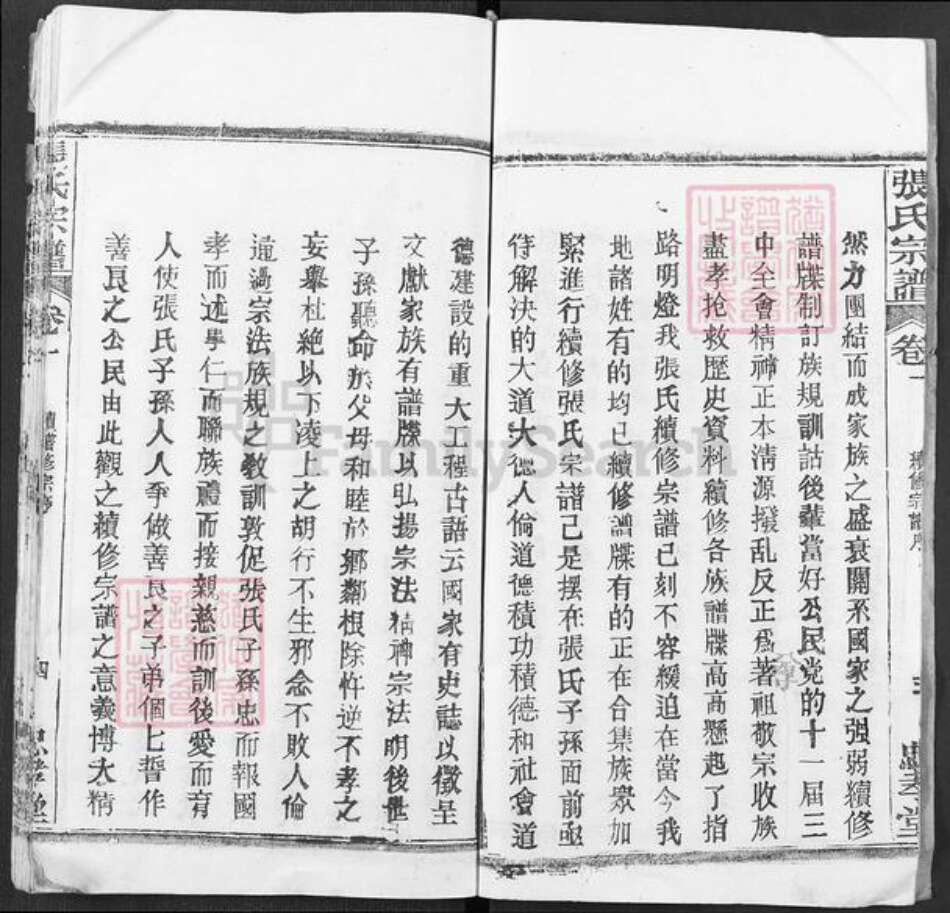 張氏宗譜
卷一
續修宗譜序
然力團結而成家族之盛衰關系國家之强弱續修
譜牒制訂族規訓詁後輩當好公民党的十一届三
中全會精神正本淸源撥乱反正爲著祖敬宗收族
盡孝抢救歷史資料續修各族譜牒高高懸起了指
路明燈我張氏續修宗譜已刻不容緩迫在當今我
地諸姓有的均已續修譜牒有的正在合集族衆加
緊進行續修張氏宗譜已是摆在張氏子孫面前亟
待解决的大道大德人倫道德積功積德和社會道
德建設的重大工程古語云國家有史誌以徵呈
文獻家族有譜牒以弘揚宗法精神宗法明後世
子孫聽命於父母和睦於鄉鄰根除忤逆不孝之
妄舉杜絶以下凌上之胡行不生邪念不敗人倫
通過宗法族規之敎訓敦促張氏子孫忠而報國
孝而述學仁而聯族禮而接親慈而訓後愛而育
人使張氏子孫人人爭做善良之子弟個上誓作
善良之公民由此觀之續修宗譜之意義博大精
張氏宗譜
卷一
四
FamilySearch